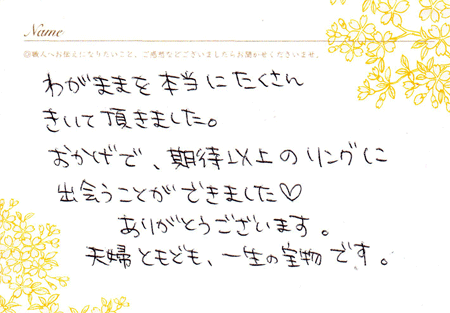 Name
◎職人へお伝えになりたいこと、ご感想などございましたらお聞かせくださいませ。
わがままを本当にたくさん
きいて頂きました。
おかげで、期待以上のリングに
出会うことができました♡
ありがとうございます。
夫婦ともども、一生の宝物です。